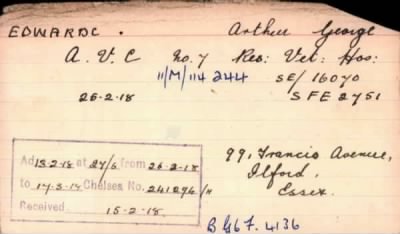 EDWARDS. Arthur George
A.V.C No. 7 Res: Vet: Hos:
11/M/114244 SE/16070
25-2-18 SFE 2751
Ad 13-2-18 at 27/6 from 26-2-18
to Chelsea No. 241294/H
Received 15-2-18.
99, Francis Avenue,
Ilford,
Essex.
B G67. 4136